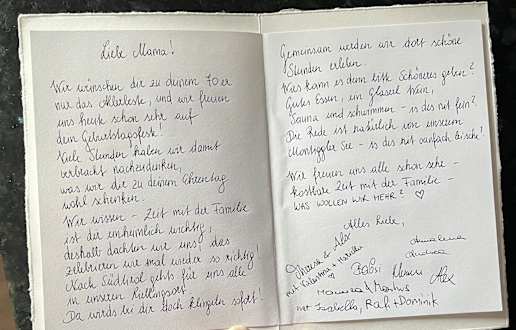 Liebe Mama!
Wir wünschen dir zu deinem 70er
nur das Allerbeste, und wir freuen
uns heute schon sehr auf
dein Geburtstagsfest!
Viele Stunden haben wir damit
verbracht nachzudenken,
was wir dir zu deinem Ehrentag
wohl schenken.
Wir wissen - Zeit mit der Familie
ist dir unheimlich wichtig,
deshalb dachten wir uns, das
zelebrieren wir mal wieder so richtig!
Nach Südtirol gehts für uns alle
in unseren Lieblingsort
Da wirds bei dir doch klingeln sofort!
Gemeinsam werden wir dort schöne
Stunden erleben.
Was kann es denn bitte Schöneres geben?
Gutes Essen, ein Glaserl Wein,
Sauna und schwimmen - is des net fein?
Die Rede ist natürlich von unserem
Montiggler See - is des net oanfach
Wir freuen uns alle schon sehr -
kostbare Zeit mit der Familie -
WAS WOLLEN WIR MEHR? ♡
Alles Liebe,
Theresa & Alex
mit Valentina &
Andrea
Gabsi
Alex
& Markus
mit Isabella, Rafi + Dominik